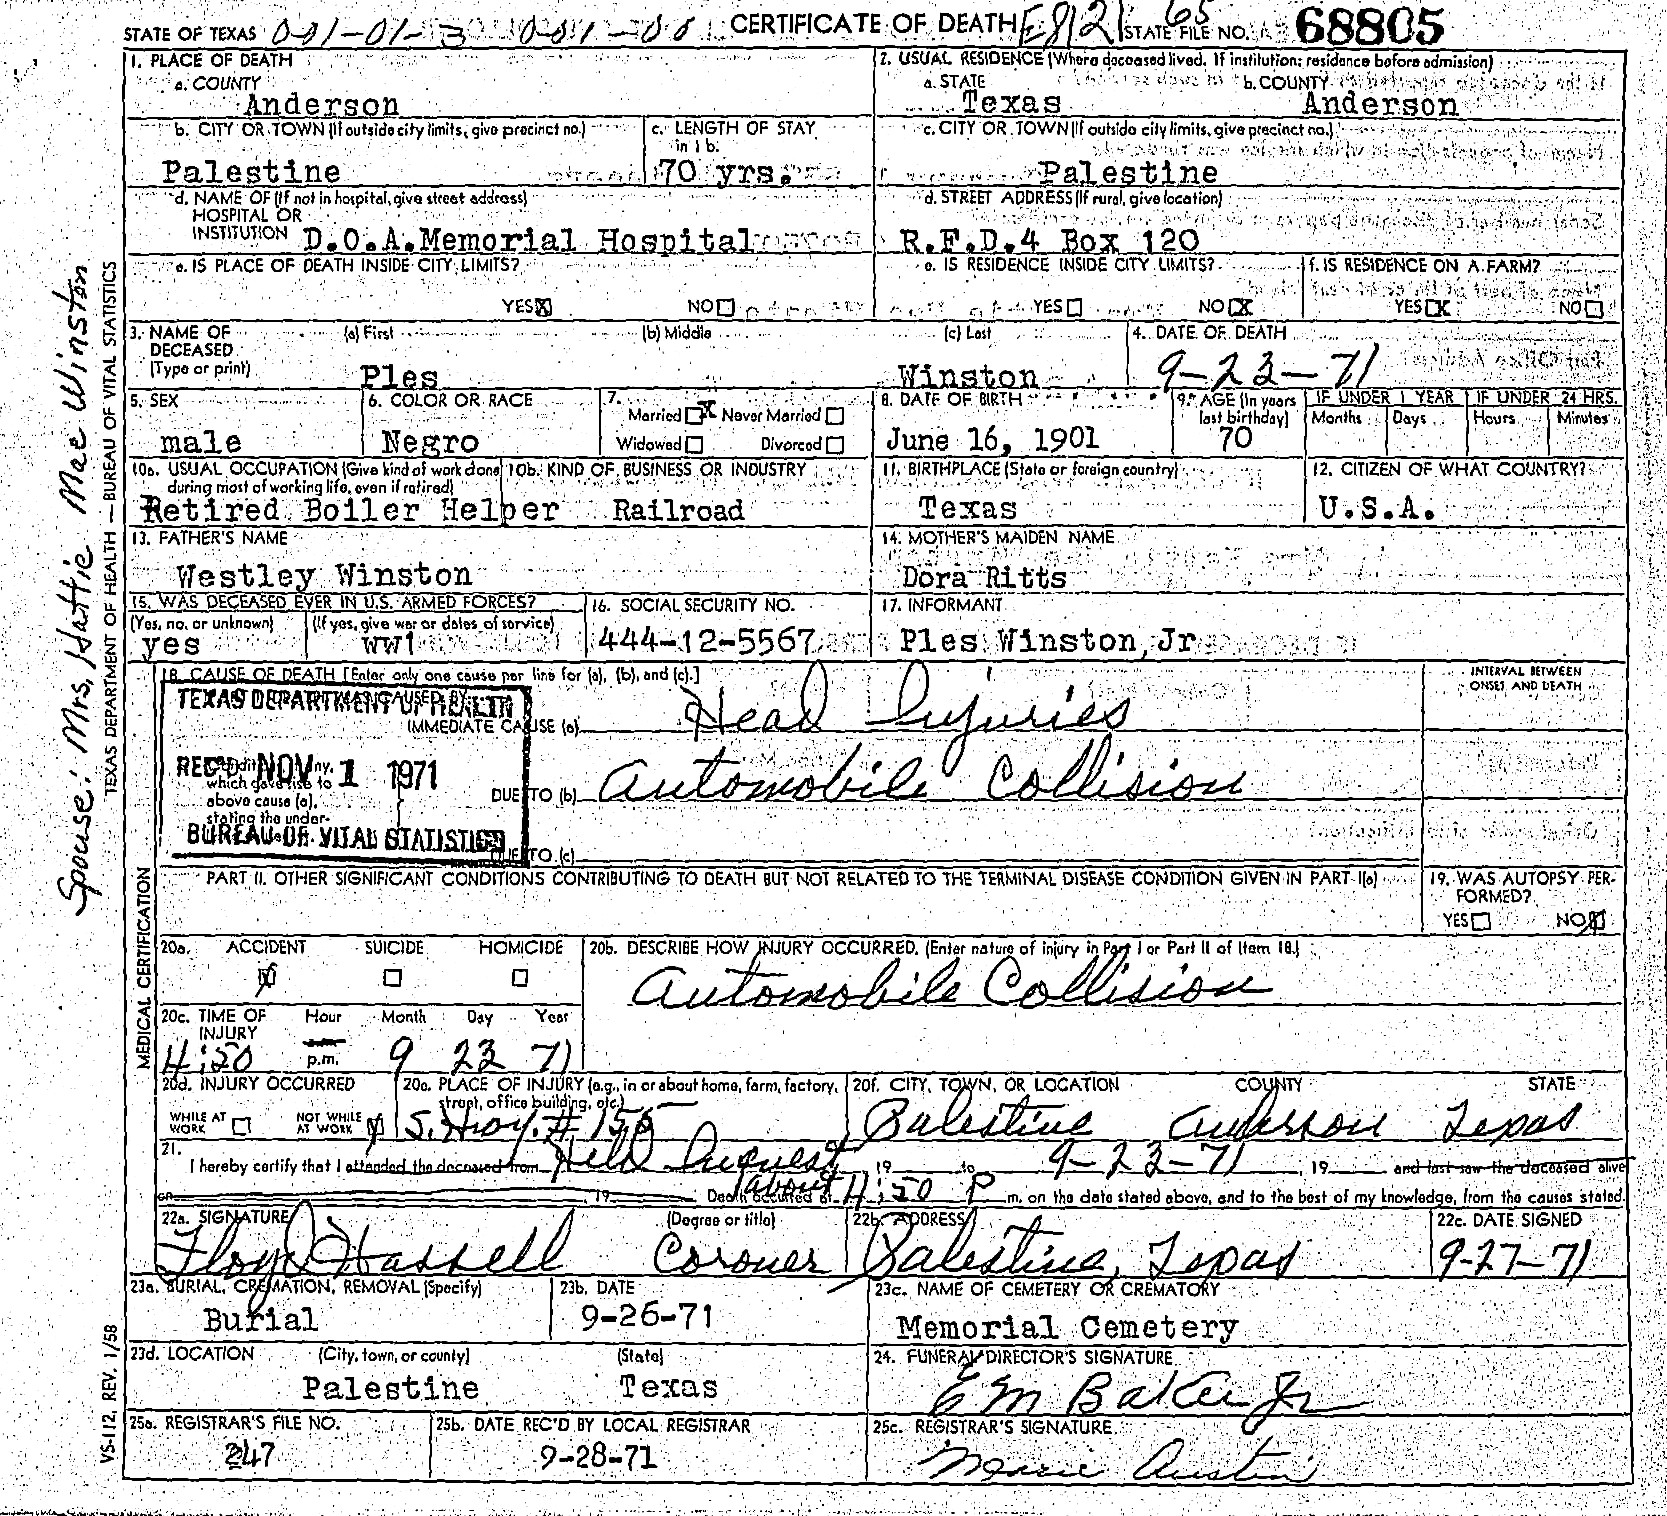 STATE OF TEXAS CERTIFICATE OF DEATH E812 65 STATE FILE NO. 68805
1. PLACE OF DEATH
a. COUNTY
Anderson
2. USUAL RESIDENCE (Where deceased lived. If institution: residence before admission)
a. STATE b. COUNTY
Texas Anderson
b. CITY OR TOWN (If outside city limits, give precinct no.)
Palestine
c. LENGTH OF STAY in 1 b.
70 yrs.
c. CITY OR TOWN (If outside city limits, give precinct no.)
Palestine
d. NAME OF (If not in hospital, give street address)
HOSPITAL OR
INSTITUTION D.O.A. Memorial Hospital
d. STREET ADDRESS (If rural, give location)
R.F.D.4 Box 120
e. IS PLACE OF DEATH INSIDE CITY LIMITS?
YES X NO
e. IS RESIDENCE INSIDE CITY LIMITS?
YES NO X
f. IS RESIDENCE ON A FARM?
YES X NO
3. NAME OF DECEASED (Type or print)
(a) First (b) Middle (c) Last
Ples Winston
4. DATE OF DEATH
9-23-71
5. SEX
male
6. COLOR OR RACE
Negro
7.
Married X Never Married
Widowed Divorced
8. DATE OF BIRTH
June 16, 1901
9. AGE (In years last birthday)
70
IF UNDER 1 YEAR
Months Days
IF UNDER 24 HRS.
Hours Minutes
10a. USUAL OCCUPATION (Give kind of work done
during most of working life, even if retired)
Retired Boiler Helper
10b. KIND OF BUSINESS OR INDUSTRY
Railroad
11. BIRTHPLACE (State or foreign country)
Texas
12. CITIZEN OF WHAT COUNTRY?
U.S.A.
13. FATHER'S NAME
Westley Winston
14. MOTHER'S MAIDEN NAME
Dora Ritts
15. WAS DECEASED EVER IN U.S. ARMED FORCES?
(Yes, no. or unknown) (If yes, give war or dates of service)
yes WW1
16. SOCIAL SECURITY NO.
444-12-5567
17. INFORMANT
Ples Winston, Jr
18. CAUSE OF DEATH [Enter only one cause per line for (a), (b), and (c).]
INTERVAL BETWEEN
ONSET AND DEATH
TEXAS DEPARTMENT OF HEALTH
IMMEDIATE CAUSE (a) Head Injuries
REC'D NOV 1 1971
which gave rise to
above cause (a),
stating the under-
DUE TO (b) Automobile Collision
BUREAU OF VITAL STATISTICS
DUE TO (c)
PART II. OTHER SIGNIFICANT CONDITIONS CONTRIBUTING TO DEATH BUT NOT RELATED TO THE TERMINAL DISEASE CONDITION GIVEN IN PART I(a)
19. WAS AUTOPSY PER-
FORMED?
YES NO X
20a. ACCIDENT SUICIDE HOMICIDE
X
20b. DESCRIBE HOW INJURY OCCURRED. (Enter nature of injury in Part I or Part II of Item 18.)
Automobile Collision
20c. TIME OF INJURY Hour Month Day Year
4:50 p.m. 9 23 71
20d. INJURY OCCURRED
WHILE AT WORK NOT WHILE AT WORK X
20e. PLACE OF INJURY (e.g., in or about home, farm, factory,
street, office building, etc.)
S. Hwy. # 155
20f. CITY, TOWN, OR LOCATION COUNTY STATE
Palestine Anderson Texas
21.
I hereby certify that I attended the deceased from Held Inquest, 19 to 9-23-71, 19 and last saw the deceased alive
on 19 Death occurred at about 4:50 P m. on the date stated above, and to the best of my knowledge, from the causes stated.
22a. SIGNATURE (Degree or title)
Floyd Hassell Coroner
22b. ADDRESS
Palestine, Texas
22c. DATE SIGNED
9-27-71
23a. BURIAL, CREMATION, REMOVAL (Specify)
Burial
23b. DATE
9-26-71
23c. NAME OF CEMETERY OR CREMATORY
Memorial Cemetery
23d. LOCATION (City, town, or county) (State)
Palestine Texas
24. FUNERAL DIRECTOR'S SIGNATURE
E M Baker Jr
25a. REGISTRAR'S FILE NO.
247
25b. DATE REC'D BY LOCAL REGISTRAR
9-28-71
25c. REGISTRAR'S SIGNATURE
Marie Austin
Spouse: Mrs. Hattie Mae Winston
TEXAS DEPARTMENT OF HEALTH — BUREAU OF VITAL STATISTICS
MEDICAL CERTIFICATION
VS-112, REV. 1/58